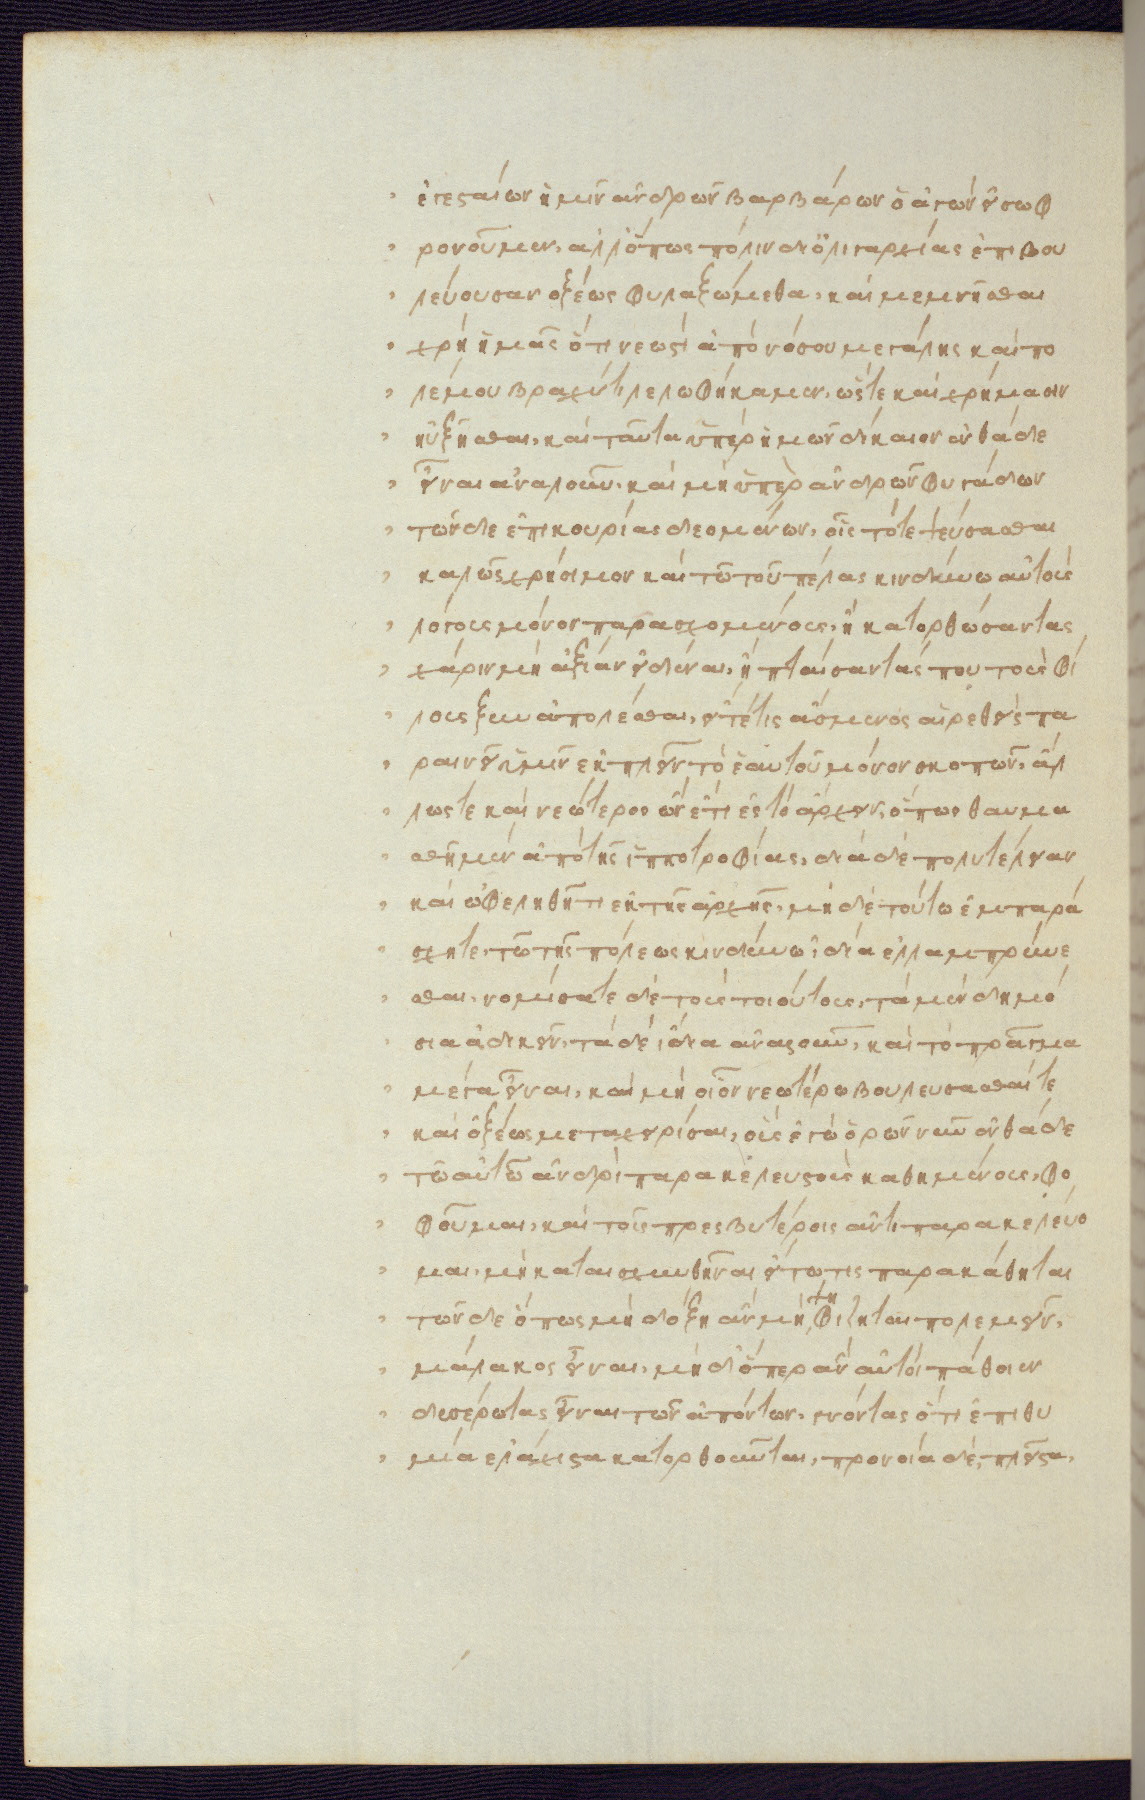 ἐγεσταίων ἡμῖν ἀνδρῶν βαρβάρων ὁ ἀγών εἰ σωφ
ρονοῦμεν, ἀλλ' ὅπως πόλιν δι' ὀλιγαρχίας ἐπιβου
λεύουσαν ὀξέως φυλαξώμεθα, καὶ μεμνῆσθαι
χρὴ ἡμᾶς ὅτι νεωστὶ ἀπὸ νόσου μεγάλης καὶ πο
λέμου βραχύ τι λελωφήκαμεν, ὥστε καὶ χρήμασιν
ηὐξῆσθαι, καὶ ταῦτα ὑπὲρ ἡμῶν δίκαιον ἐνθάδε
εἶναι ἀναλοῦν, καὶ μὴ ὑπὲρ ἀνδρῶν φυγάδων
τῶνδε ἐπικουρίας δεομένων, οἷς τότε ψεύσασθαι
καλῶς χρήσιμον καὶ τῶ τοῦ πέλας κινδύνω αὐτοὺς
λόγους μόνον παρασχομένους, ἢ κατορθώσαντας
χάριν μὴ ἀξίαν εἰδέναι, ἢ πταίσαντάς που τοὺς φί
λους ξυναπολέσθαι, εἴ τέ τις ἄσμενος αἱρεθεὶς πα
ραινεῖ ὑμῖν ἐκπλεῖν τὸ ἑαυτοῦ μόνον σκοπῶν, ἄλ
λως τε καὶ νεώτερος ὢν ἔτι ἐς τὸ ἄρχειν, ὅπως θαυμα
σθῆ μὲν ἀπὸ τῆς ἱπποτροφίας, διὰ δὲ πολυτέλειαν
καὶ ὠφεληθῆ τι ἐκ τῆς ἀρχῆς, μὴ δὲ τούτω ἐμπαρά
σχητε, τῶ τῆς πόλεως κινδύνω ἰδία ἐλλαμπρύνε
σθαι, νομίσατε δὲ τοὺς τοιούτους, τὰ μὲν δημό
σια ἀδικεῖν, τὰ δὲ ἴδια ἀναλοῦν, καὶ τὸ πρᾶγμα
μέγα εἶναι, καὶ μὴ οἷον νεωτέρω βουλεύσασθαί τε
καὶ ὀξέως μεταχειρίσαι, οὓς ἐγὼ ὁρῶν νῦν ἐνθάδε
τῶ αὐτῶ ἀνδρὶ παρακελευστοὺς καθημένους, φο
βοῦμαι, καὶ τοῖς πρεσβυτέροις ἀντιπαρακελεύο
μαι, μὴ καταισχυνθῆναι εἴ τω τις παρακάθηται
τῶνδε ὅπως μὴ δόξη ἂν μὴ ψηφίζηται πολεμεῖν,
μαλακὸς εἶναι, μὴ δ' ὅπερ ἂν αὐτοὶ πάθοιεν
δυσέρωτας εἶναι τῶν ἀπόντων, γνόντας ὅτι ἐπιθυ
μία ἐλάχιστα κατορθοῦνται, προνοία δὲ, πλεῖστα,